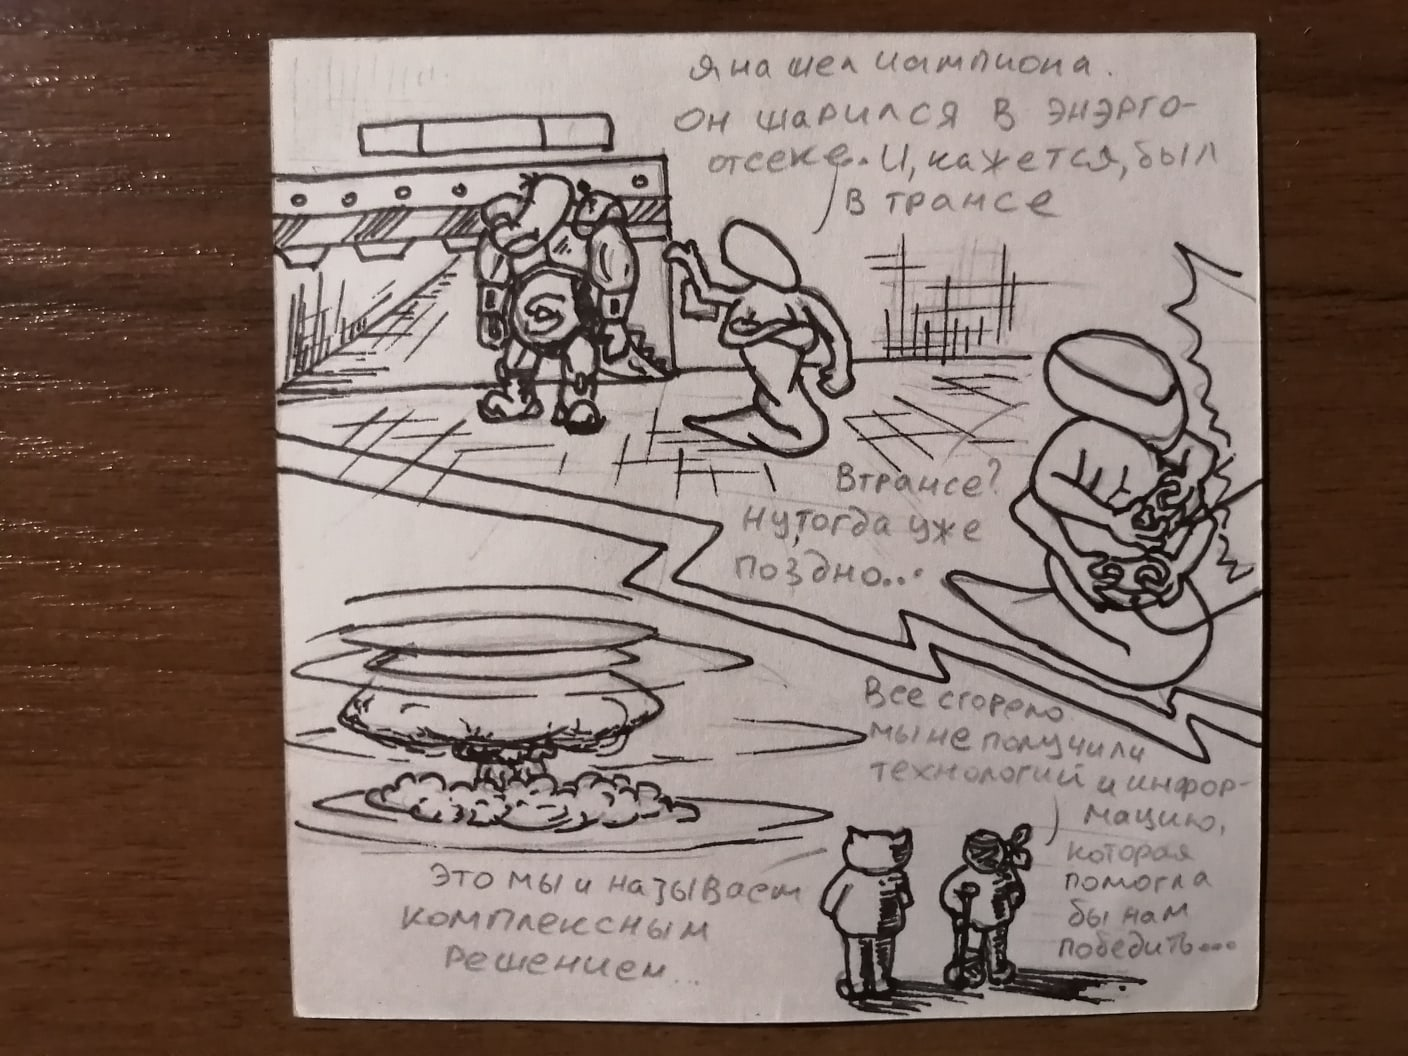 Я нашел чемпиона.
Он шарился в энэрго-
отсеке. И, кажется, был
в трансе
В трансе?
Ну, тогда уже
поздно...
Все сгорело
мы не получили
технологий и инфор-
мацию,
которая
помогла
бы нам
победить...
Это мы и называем
комплексным
решением...